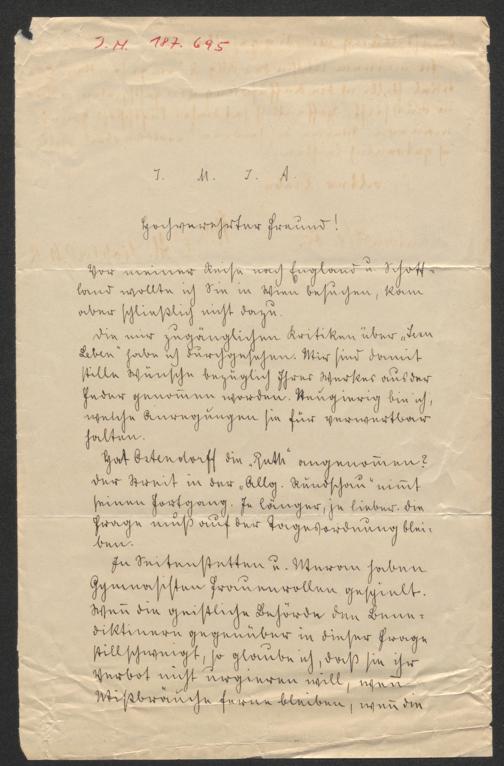 J. N. 187.695
J. M. J. A.
Hochverehrter Freund!
Vor meiner Reise nach England u. Schott-
land wollte ich Sie in Wien besuchen, kam
aber schließlich nicht dazu.
Die mir zugänglichen Kritiken über
Leben" habe ich durchgesehen. Mir sind damit
stille Wünsche bezüglich Ihres Werkes aus der
Feder genom̅en worden. Neugierig bin ich,
welche Anregungen sie für verwertbar
halten.
Hat Ostendorff die „Ruth" angenom̅en?
Der Streit in der „Allg. Rundschau" nim̅t
seinen Fortgang. Je länger, je lieber. Die
Frage muß auf der Tagesordnung blei-
ben.
In Seitenstetten u. Meran haben
Gymnasisten Frauenrollen gespielt.
Wen̅ die geistliche Behörde den Bene-
diktinern gegenüber in dieser Frage
stillschweigt, so glaube ich, daß sie ihr
Verbot nicht urgieren will, wen̅
Mißbräuche ferne bleiben, wen̅ die